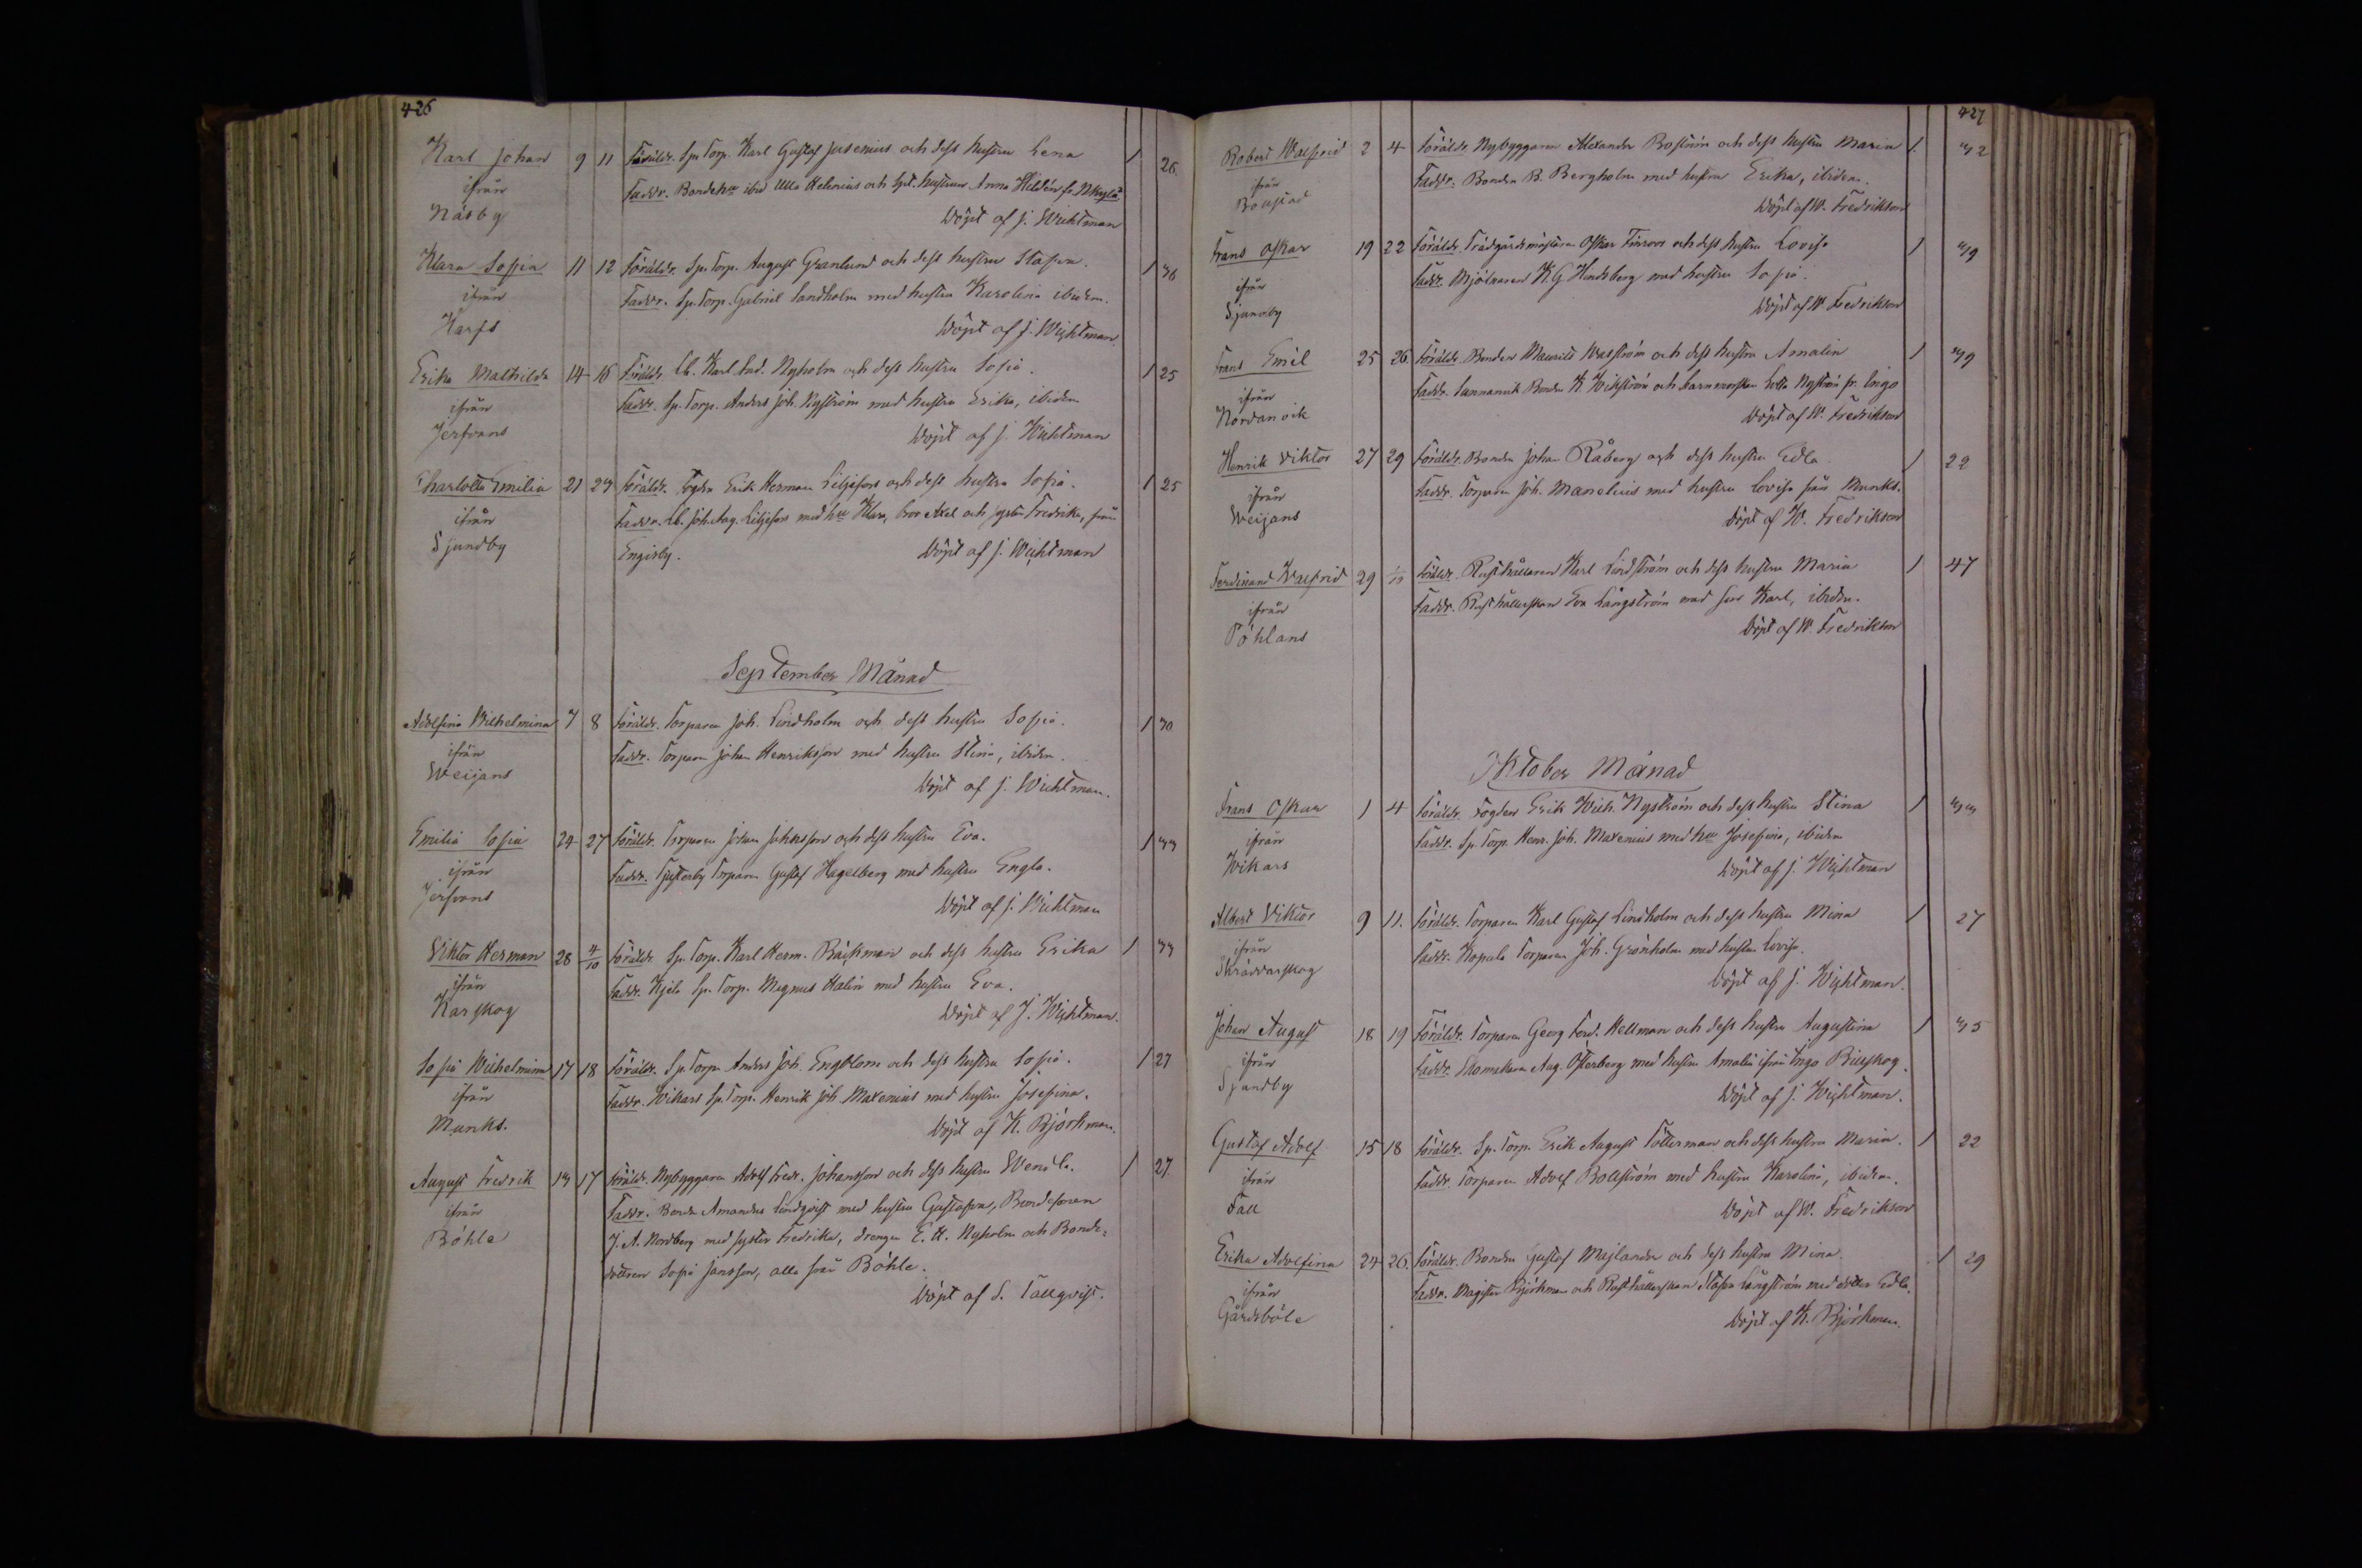 426
Karl Johan 9 11 Föräldr. Sp. Torp. Karl Gustaf Jusenius och dess hustru Lena 1 26.
ifrån Faddr. Bondehu ibid Ulla Helenius och Spt. hustrun Anna Heldén fr.
Näsby Döpt af J. Wichtman
Klara Sofia 11 12 Föräldr. Sp. Torp. August Granlund och dess hustru Stafva. 1 36
ifrån Faddr. Sp. Torp. Gabriel Sandholm med hustru Karolina ibidem.
Harfs Döpt af J. Wichtman
Erika Mathilda 14 16 Föräldr. Lb. Karl And. Nyholm och dess hustru Sofia. 1 25
ifrån Faddr. Sp. Torp. Anders Joh. Nyström med hustru Erika, ibidem
Jerfvans Döpt af J. Wichtman
Charlotta Emilia 21 23 Föräldr. Fogden Erik Herman Liljefors och dess hustru Sofia. 1 25
ifrån Faddr. Lb. Joh. Aug. Liljefors med hu Klara, bror Axel och syster Fredrika, från
Sjundby Engisby. Döpt af J. Wichtman
September Månad
Adolfina Wilhelmina 7 8 Föräldr. Torparen Joh. Lindholm och dess hustru Sofia. 1 30
ifrån Faddr. Torparen Johan Henriksson med hustru Stina, ibidem.
Weijans Döpt af J. Wichtman.
Emilia Sofia 24 27 Föräldr. Torparen Johan Johansson och dess hustru Eva. 1 33
ifrån Faddr. Tjusterby Torparen Gustaf Hagelberg med hustru Engla.
Jerfvans Döpt af J. Wichtman
Viktor Herman 28 4/10 Föräldr. Sp. Torp. Karl Herm. Bäckman och dess hustru Erika 1 33
ifrån Faddr. Kjela Sp. Torp. Magnus Halin med hustru Eva.
Karskog Döpt af J. Wichtman.
Sofia Wilhelmina 17 18 Föräldr. Sp. Torp. Anders Joh. Engblom och dess hustru Sofia. 1 27
ifrån Faddr. Wikars Sp. Torp. Henrik Joh. Maxenius med hustru Josefina.
Munks. Döpt af K. Björkman.
August Fredrik 13 17 Föräldr. Nybyggaren Adolf Fredr. Johansson och dess hustru Wendla. 1 27.
ifrån Faddr. Bonden Amandus Lindqvist med hustru Gustafva, Bondesonen
Böhle J. A. Nordberg med syster Fredrika, drengen E. A. Nyholm och Bonde-
dottren Sofia Jansson, alla från Böhle.
Döpt af S. Tallqvist.
427
Robert Walfrid 2 4 Föräldr. Nybyggaren Alexander Boström och dess hustru Maria 1. 32
ifrån Faddr. Bonden B. Bergholm med hustru Erika, ibidem.
Döpt af W. Fredrikson
Frans Oskar 19 22 Föräldr. Trädgårdsmästaren Oskar Finroos och dess hustru Lovisa 1 39
ifrån Faddr. Mjölnaren K. G Hindsberg med hustru Sofia.
Sjundby Döpt af W. Fredrikson
Frans Emil 25 26. Föräldr. Bonden Maurits Walström och dess hustru Amalia 1 39
ifrån Faddr. Bonden K Wikström och barnmorskan Lotta Nyström fr. Ingo
Nordanvik Döpt af W. Fredrikson
Henrik Viktor 27 29 Föräldr. Bonden Johan Råberg och dess hustru Edla 1 22
ifrån Faddr. Torparen Joh. Manelius med hustru Lovisa från Munks.
Weijans Döpt af W. Fredrikson
Ferdinand Walfrid 29 Föräldr. Rusthållaren Karl Lindström och dess hustru Maria 1 47
ifrån Faddr. Rusthållerskan Eva Långström med son Karl, ibidem.
Pöhlans Döpt af W. Fredrikson
Oktober Månad
Frans Oskar 1 4 Föräldr. Fogden Erik Wilh. Nyström och dess hustru Stina 1 33
ifrån Faddr. Sp. Torp. Henr. Joh. Maxenius med hu Josefina, ibidem
Wikars Döpt af J. Wichtman
Albert Viktor 9 11. Föräldr. Torparen Karl Gustaf Lindholm och dess hustru Mina 1 27
ifrån Faddr. Kopula Torparen Joh. Grönholm med hustru Lovisa.
Skräddarskog Döpt af J. Wichtman.
Johan August 18 19 Föräldr. Torparen Georg Ferd. Hellman och dess hustru Augustina 1 35
ifrån Faddr. Skomakaren Aug. Österberg med hustru Amalia ifrån Ingo Billskog.
Sjundby Döpt af J. Wichtman.
Gustaf Adolf 15 18 Föräldr. Sp. Torp. Erik August Tötterman och dess hustru Maria. 1 22
ifrån Faddr. Torparen Adolf Bollström med hustru Karolina, ibidem.
Fall Döpt af W. Fredrikson
Erika Adolfina 24 26. Föräldr. Bonden Gustaf Majlander och dess hustru Mina. 1 29
ifrån Faddr. Magister Björkman och Rusthållerskan Stafva Långström med dotter Edla.
Gårdsböle Döpt af K. Björkman.